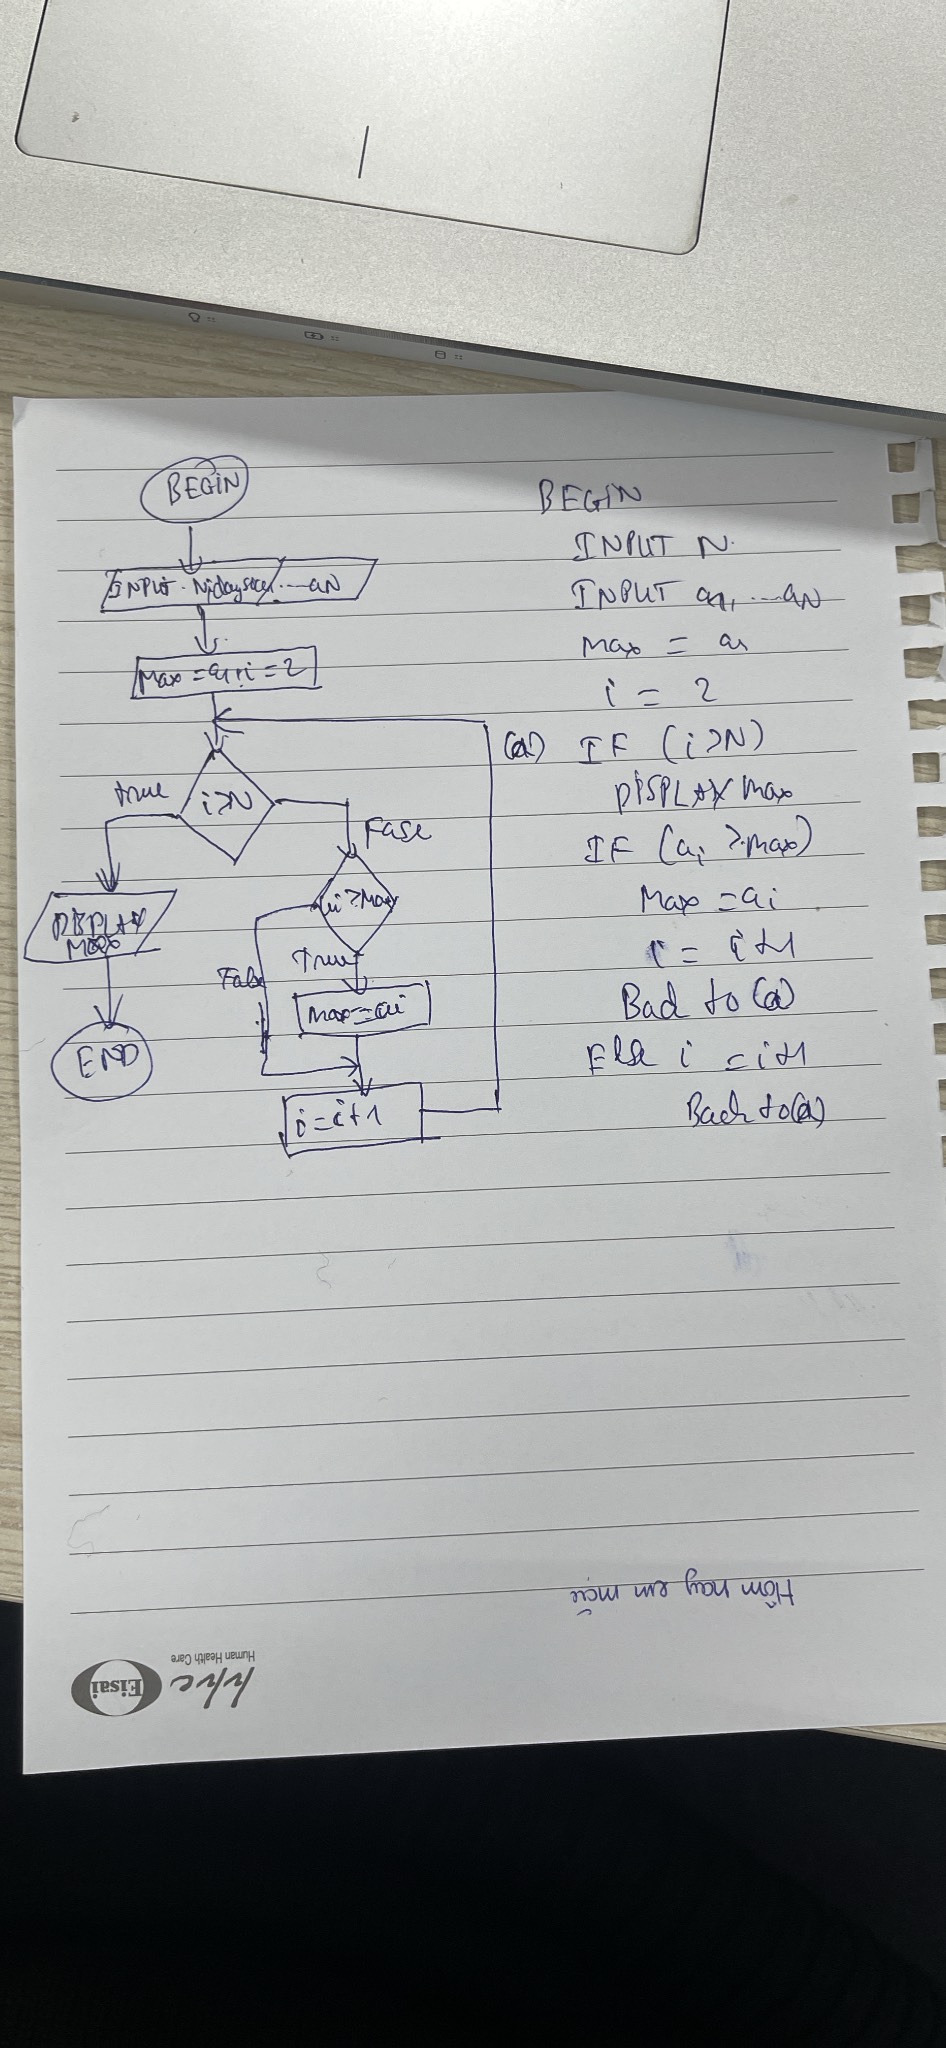 BEGIN
INPUT N, dãy số a1, ... aN
Max = a1, i = 2
i > N
true
Fase
DISPLAY
Max
END
ai > Max
True
False
max = ai
i = i + 1
BEGIN
INPUT N
INPUT a1, ... aN
Max = a1
i = 2
(a) IF (i > N)
DISPLAY max
IF (ai > max)
Max = ai
i = i + 1
Back to (a)
Else i = i + 1
Back to (a)
Hôm nay em
hhc
Human Health Care
Eisai